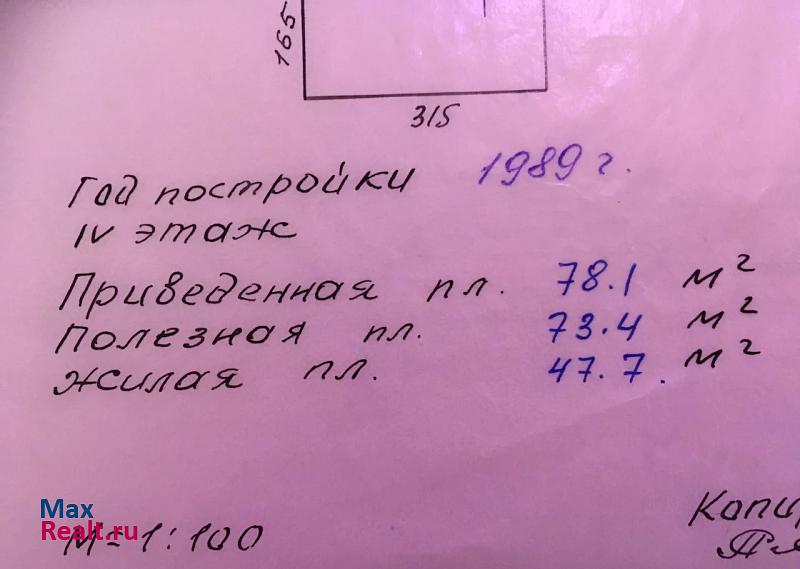 165
315
Год постройки 1989 г.
IV этаж
Приведенная пл. 78.1 м²
Полезная пл. 73.4 м²
Жилая пл. 47.7. м²
Max
Realt.ru
М=1:100